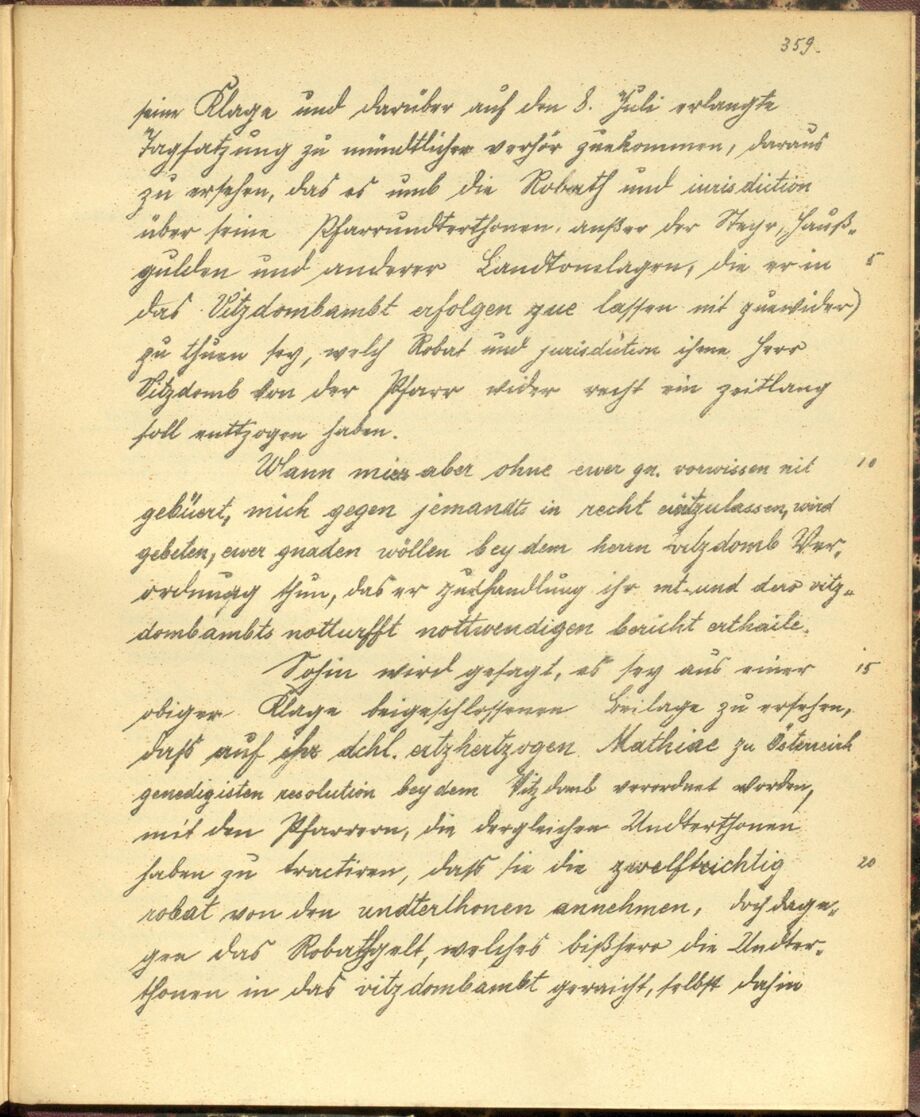 359.
seine Klage und darüber auf den 8. Juli erlangte
Tagsatzung zu mündtlicher verhör zuekommen, daraus
zu ersehen, das es umb die Robath und iurisdiction
über seine Pfarrundterthonen, außer der Steyr, Hauß-
gulden und anderer Landtonslagen, die er in 5
das Vitzdombambt erfolgen zue lassen nit zuewider)
zu thuen sey, welch Robat und jurisdiction ihme Herr
Vitzdomb von der Pfarr wider recht ein zeitlang
soll enttzogen haben.
Wann mier aber ohne ewer gn. vorwissen nit 10
gebüert, mich gegen jemandts in recht einzulassen, wird
gebeten, ewer gnaden wöllen bey dem herrn vitzdomb Ver-
ordnung thun, das er zu handlung ihr mt. und dero vitz-
dombambts notturfft nottwendigen bericht erthaile.
Sohin wird gesagt, es sey aus einer 15
obiger Klage beigeschlossenen Beilage zu ersehen,
dass auf ihr dchl. ertzhertzogen Mathiae zu Österreich
genedigisten resolution bey dem Vitzdomb verordnet worden,
mit den Pfarrern, die dergleichen Undterthonen
haben zu tractiren, dass sie die zwelftichtig 20
robat von den undterthonen annehmen, doch dage-
gen das Robathgelt, welches bißhero die Undter-
thonen in das vitzdombambt geraicht, selbst dahin